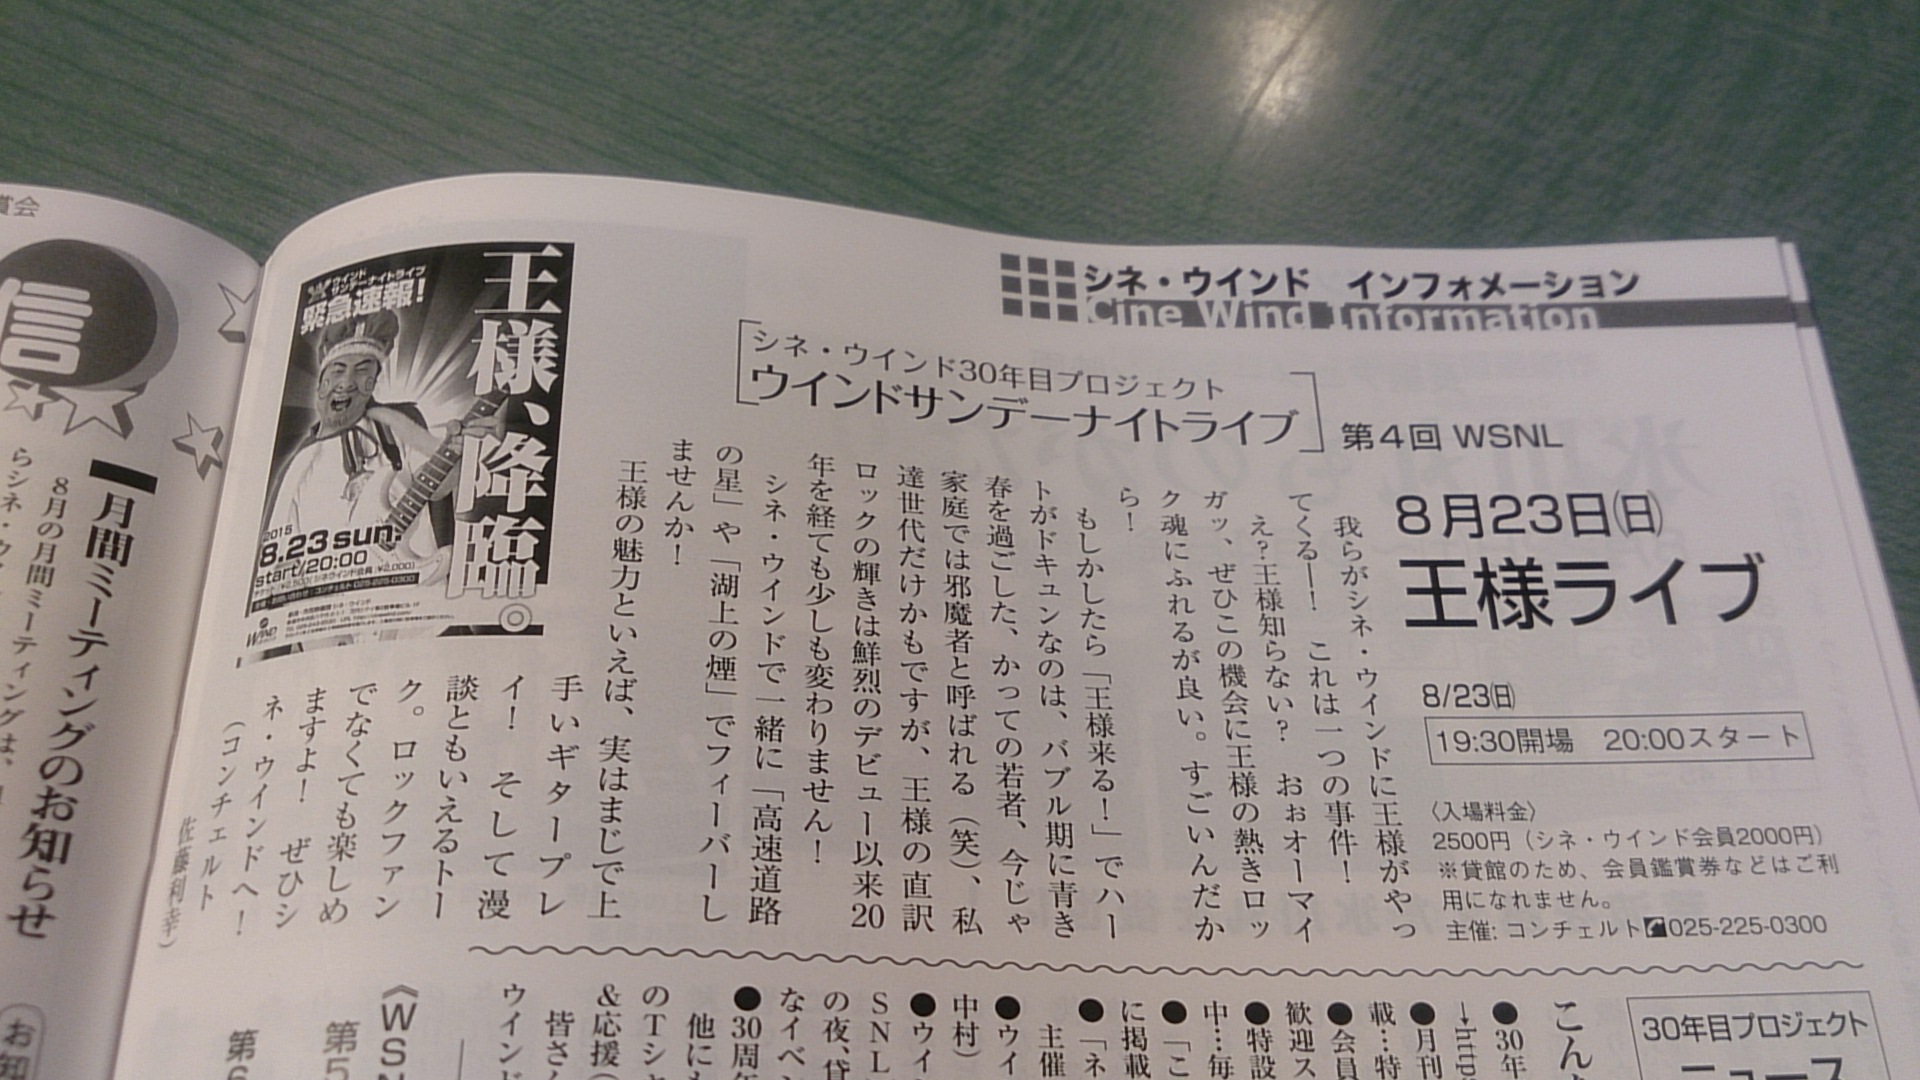 シネ・ウインド インフォメーション
Cine Wind Information
シネ・ウインド30年目プロジェクト
ウインドサンデーナイトライブ
第4回 WSNL
8月23日(日)
王様ライブ
8/23(日)
19:30開場 20:00スタート
〈入場料金〉
2500円（シネ・ウインド会員2000円）
※貸館のため、会員鑑賞券などはご利
用になれません。
主催: コンチェルト 025-225-0300
我らがシネ・ウインドに王様がやっ
てくるー！ これは一つの事件！
え？王様知らない？ おぉオーマイ
ガッ、ぜひこの機会に王様の熱きロッ
ク魂にふれるが良い。すごいんだか
ら！
もしかしたら「王様来る！」でハー
トがドキュンなのは、バブル期に青き
春を過ごした、かっての若者、今じゃ
家庭では邪魔者と呼ばれる（笑）、私
達世代だけかもですが、王様の直訳
ロックの輝きは鮮烈のデビュー以来20
年を経ても少しも変わりません！
シネ・ウインドで一緒に「高速道路
の星」や「湖上の煙」でフィーバーし
ませんか！
王様の魅力といえば、実はまじで上
手いギタープレ
イ！ そして漫
談ともいえるトー
ク。ロックファン
でなくても楽しめ
ますよ！ ぜひシ
ネ・ウインドへ！
（コンチェルト
佐藤利幸）
ウインド
サンデーナイトライブ
緊急速報！
王様、降臨。
2015
8.23 sun.
start/20:00
WIND
30年目プロジェクト
ニュース
こん
●30年
→http
●月刊
載…特
●会員
歓迎ス
●特設
中…毎
●「こ
に掲載
●「ネ
主催
●ウイ
中村）
●ウイ
SNL
の夜、貸
なイベン
●30周年
他にも
のTシャ
&応援（
皆さん
ウインド
《WSN
第5
第6
賞会
信
月間ミーティングのお知らせ
8月の月間ミーティングは、
らシネ・ウ
お知